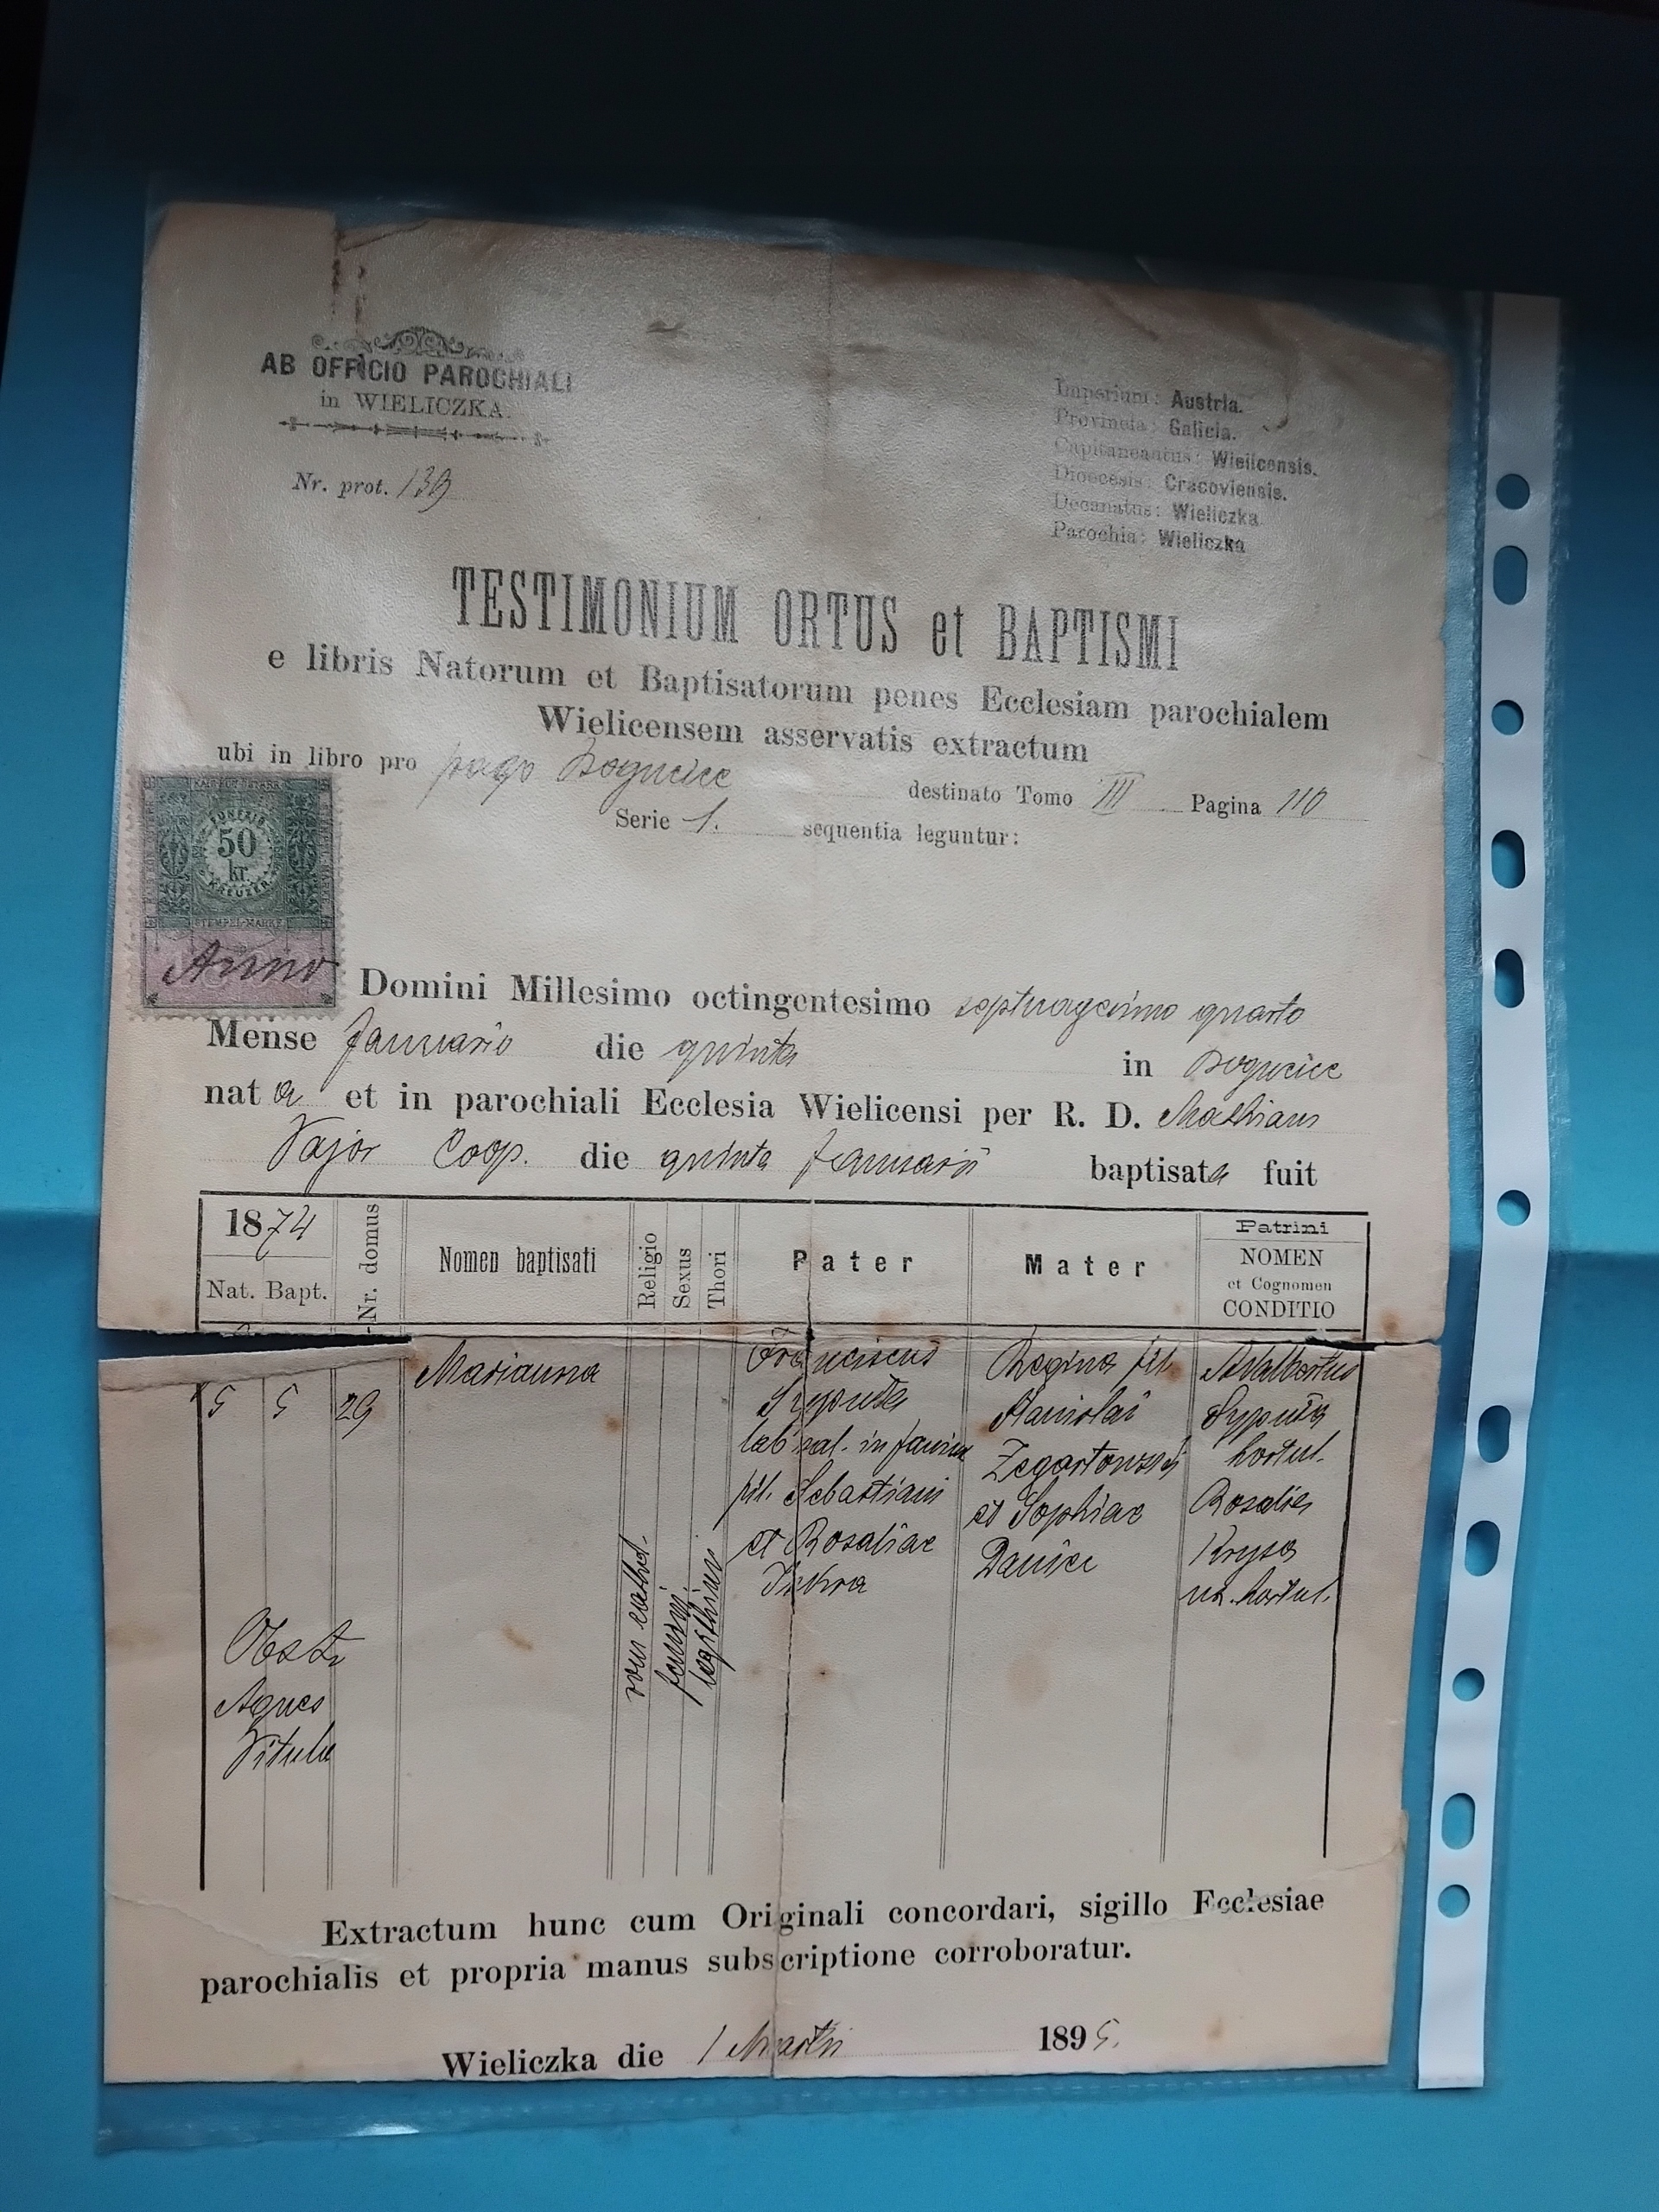 AB OFFICIO PAROCHIALI
in WIELICZKA.
Nr. prot. 139
Imperium: Austria.
Provincia: Galicia.
Capitaneatus: Wielicensis.
Dioecesis: Cracoviensis.
Decanatus: Wieliczka
Parochia: Wieliczka
TESTIMONIUM ORTUS et BAPTISMI
e libris Natorum et Baptisatorum penes Ecclesiam parochialem
Wielicensem asservatis extractum
ubi in libro pro pago Bogucice destinato Tomo III Pagina 110
Serie 1. sequentia leguntur:
50
kr.
KREUZER
STEMPEL-MARKE
Anno Domini Millesimo octingentesimo septuagesimo quarto
Mense Januario die quinta in Bogucice
nat a et in parochiali Ecclesia Wielicensi per R. D. Mathiam
Vajor Coop. die quinta Januarii baptisata fuit
1874
Nat. Bapt.
Nr. domus
Nomen baptisati
Religio
Sexus
Thori
Pater
Mater
Patrini
NOMEN
et Cognomen
CONDITIO
5 5 29
Marianna
rom cathol.
femin.
legithimi
Franciscus
Sypuła
lab sal. in fodin
fil. Sebastiani
et Rosaliae
Iskra
Regina fil.
Stanislai
et Sophiae
Daniec
Adalbertus
Sypuła
hortul.
Rosalia
Krysa
ux. hortul.
Obst.
Agnes
Vitula
Extractum hunc cum Originali concordari, sigillo Ecclesiae
parochialis et propria manus subscriptione corroboratur.
Wieliczka die 1 Martii 1895.